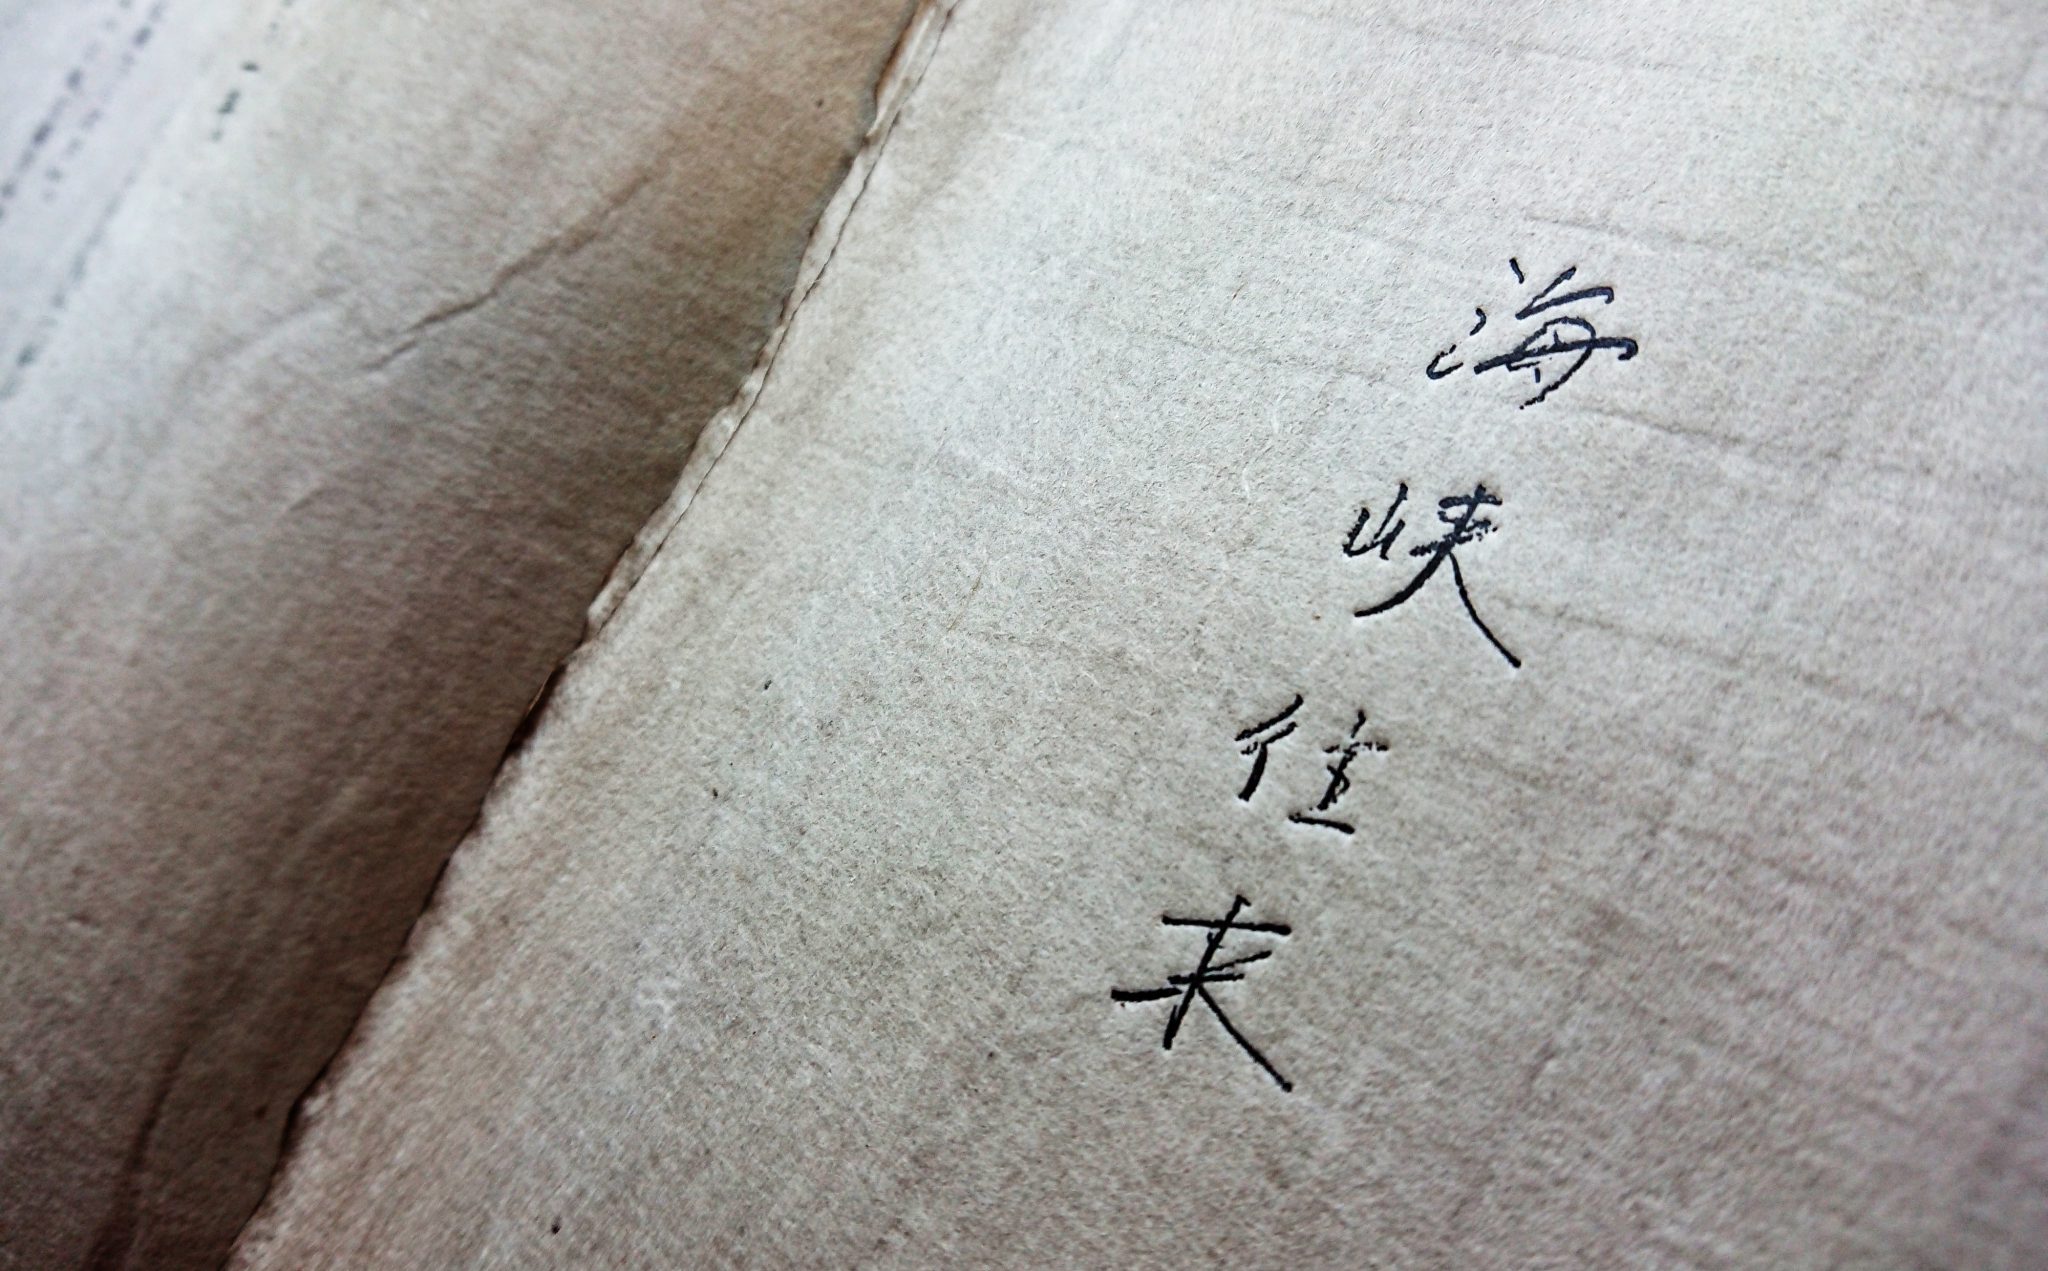 海峡往来